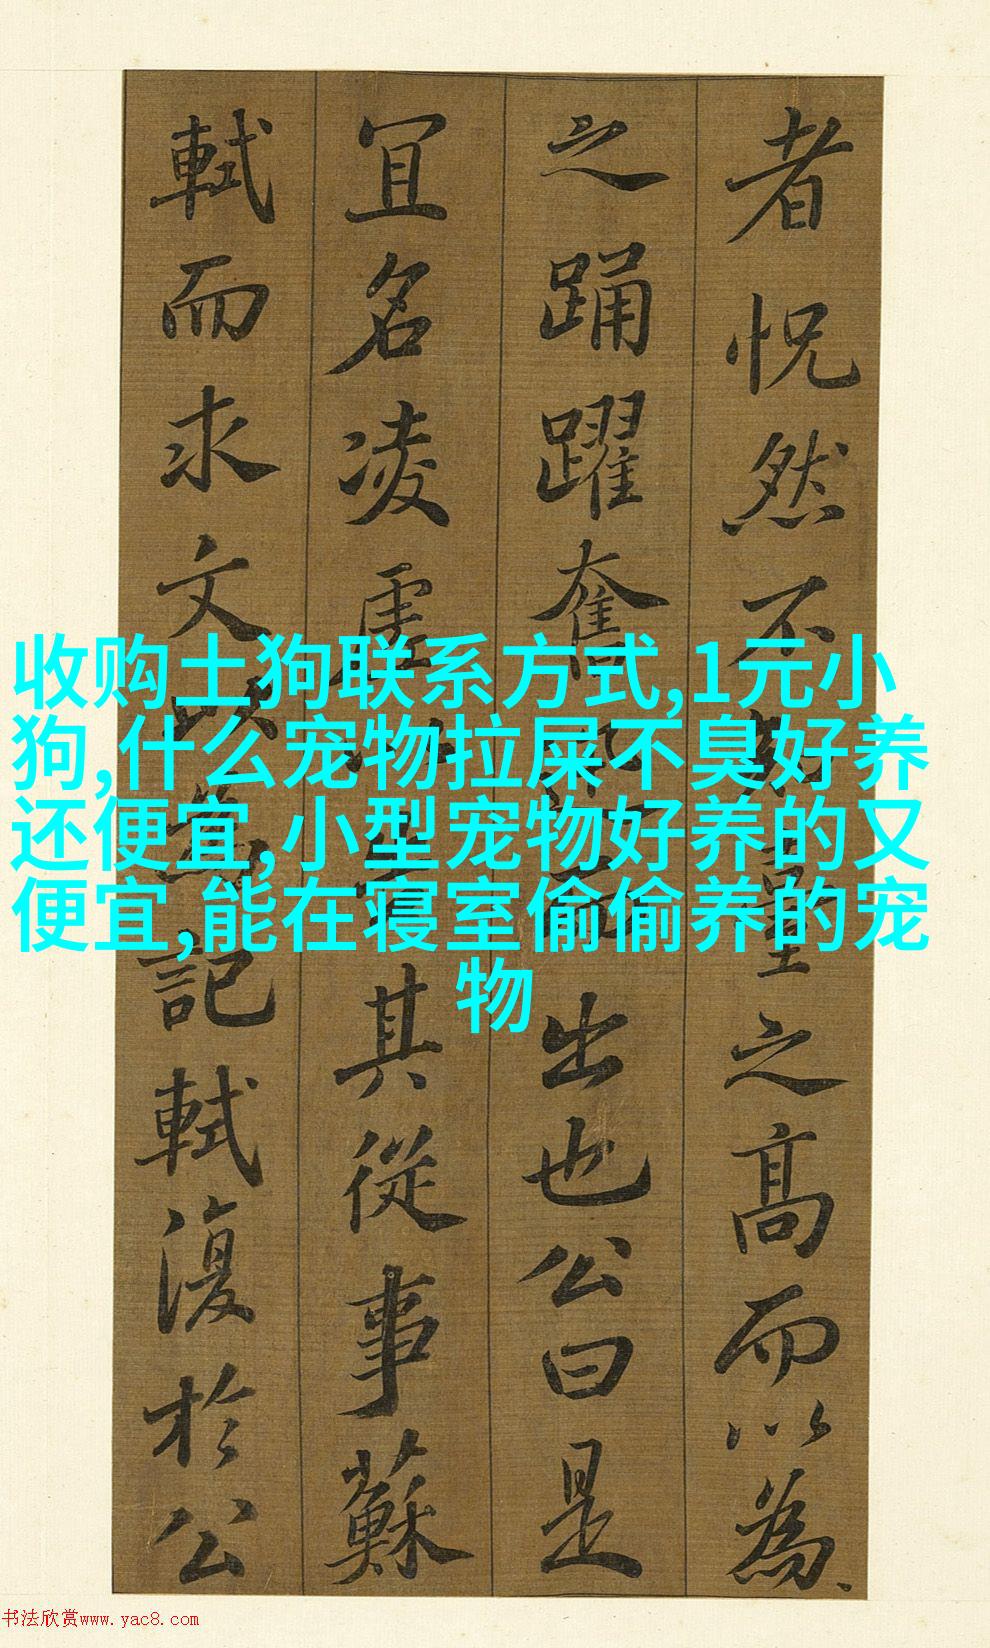 者怳然不知臺之高而以為
之踊躍奮迅而出也公曰是
宜名凌虛以告其從事蘇
軾而求文以為記軾復於公
收购土狗联系方式,1元小
狗,什么宠物拉屎不臭好养
还便宜,小型宠物好养的又
便宜,能在寝室偷偷养的宠
物
书法欣赏www.yac8.com